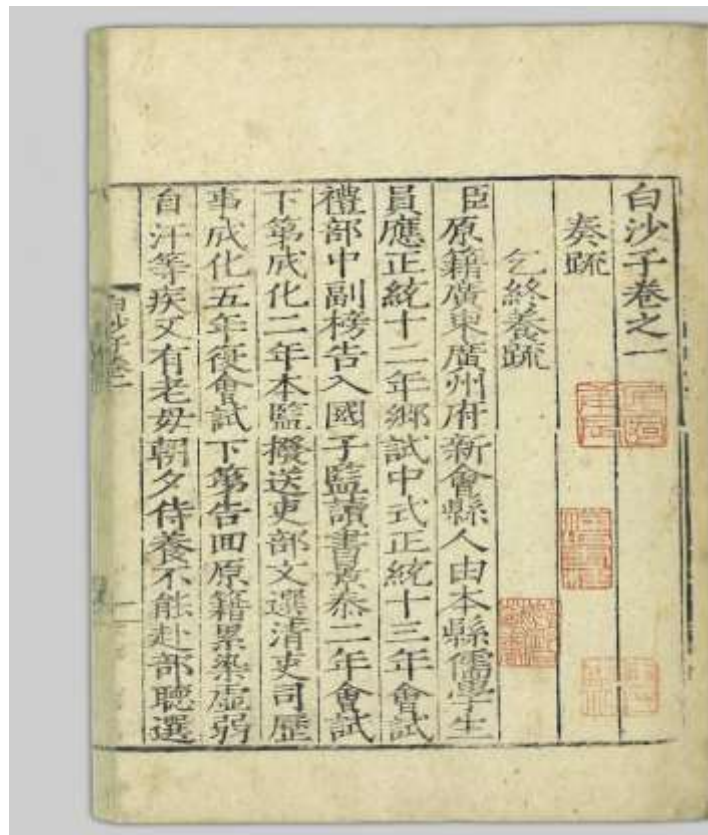 白沙子卷之一
奏疏
乞終養疏
臣原籍廣東廣州府新會縣人由本縣儒學生
員應正統十二年鄉試中式正統十三年會試
禮部中副榜告入國子監讀書景泰二年會試
下第成化二年本監撥送吏部文選清吏司歷
事成化五年復會試下第告回原籍累染虛弱
自汗等疾又有老母朝夕侍養不能赴部聽選
白沙子卷一
一